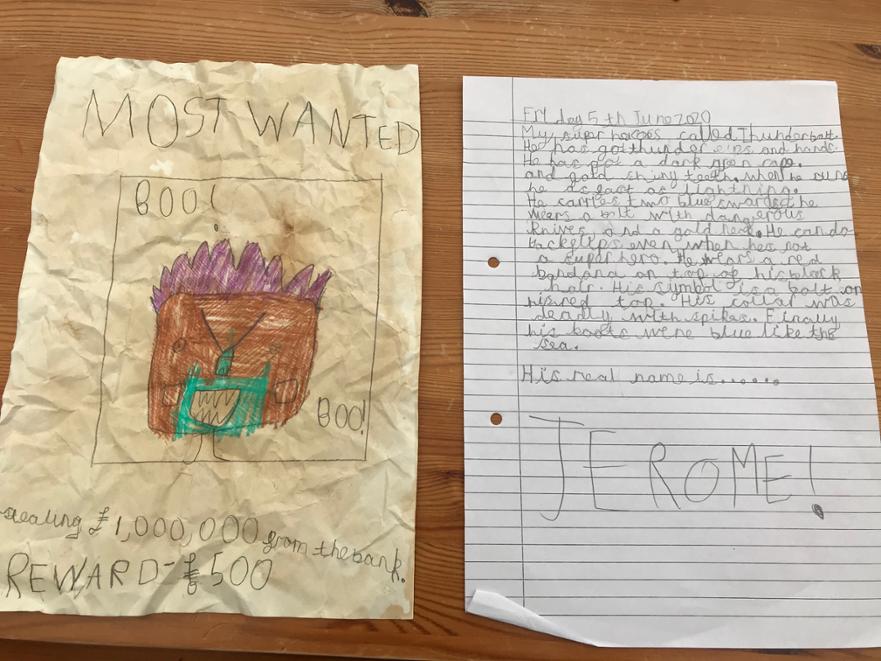 MOST WANTED
BOO!
BOO!
stealing £1,000,000 from the bank.
REWARD-£500
Friday 5th June 2020
My super called Thunderbolt.
He has got thunder and hands.
He has got a dark green cape.
and gold shiny teeth. when he runs
he is fast as lightning.
He carries two blue he
wears a belt with dangerous
knives and a gold He can do
backflips even when hes not
a superhero. He wears a red
bandana on top of his black
hair. His symbol is a bolt on
his red top. His collar was
deadly with spikes. Finally
his boots were blue like the
sea.
His real name is......
JEROME!